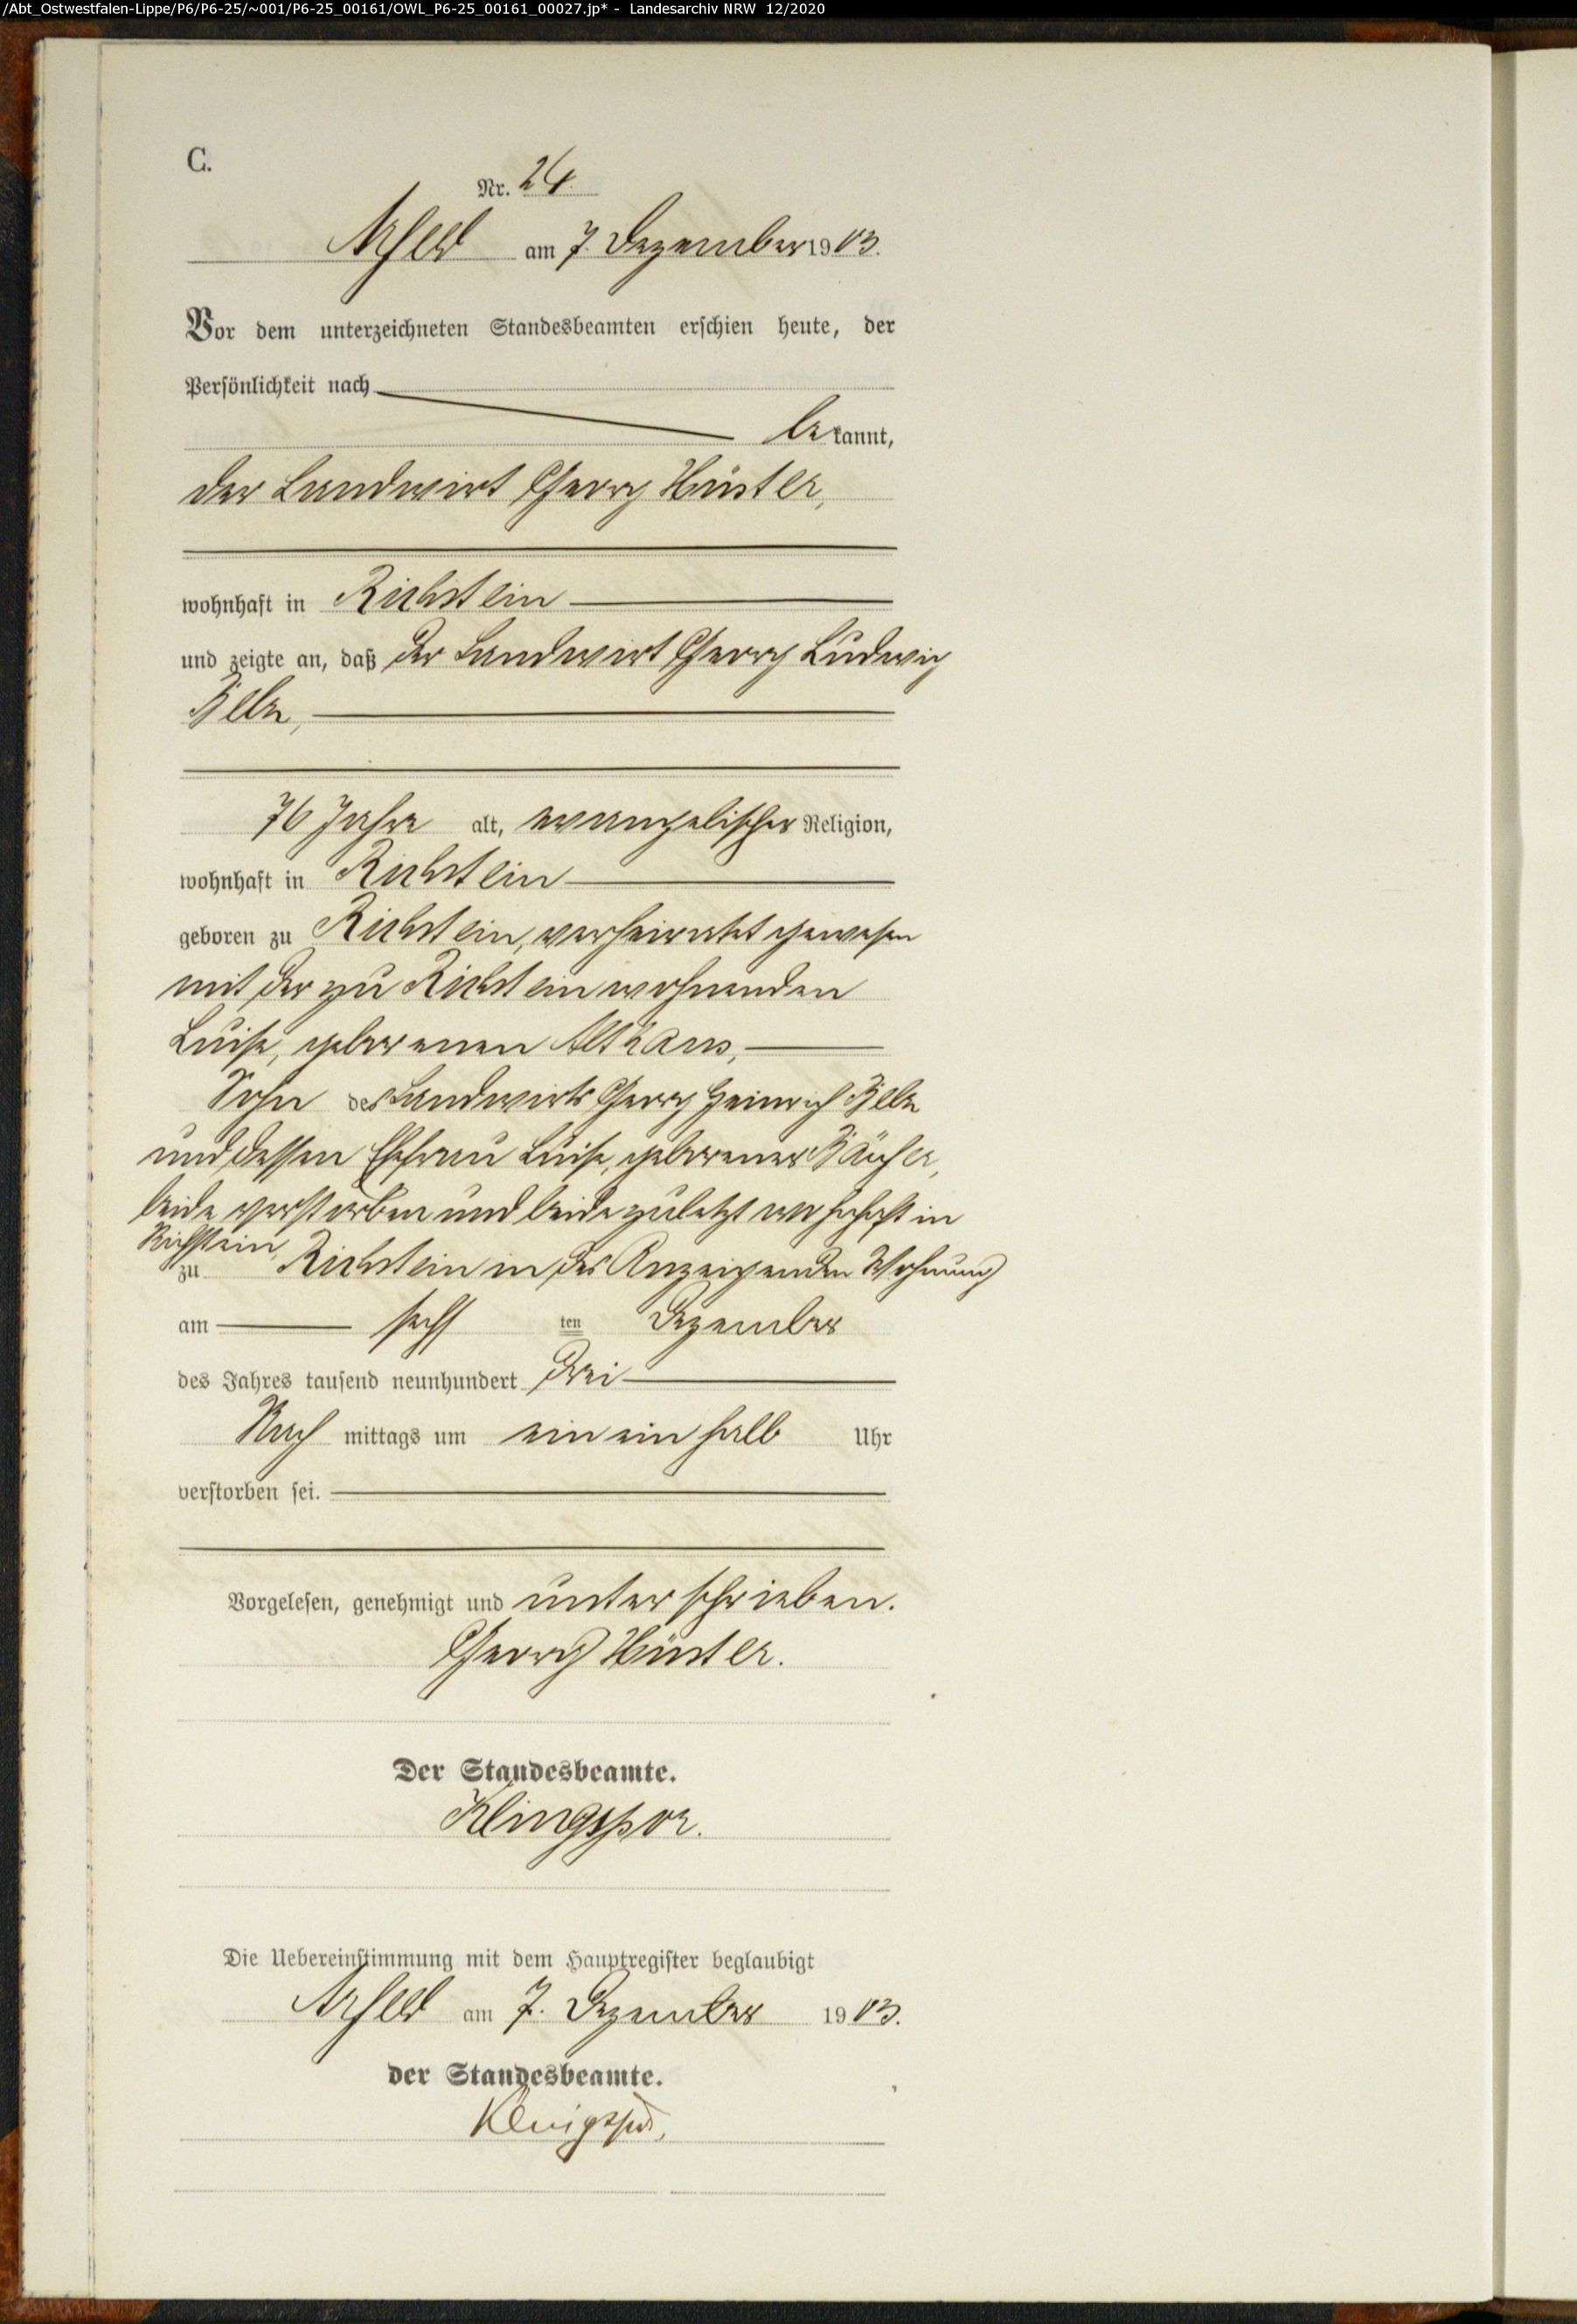 /Abt_Ostwestfalen-Lippe/P6/P6-25/~001/P6-25_00161/OWL_P6-25_00161_00027.jp* - Landesarchiv NRW 12/2020
C.
Nr. 24.
Arfeld am 7. Dezember 1903.
Vor dem unterzeichneten Standesbeamten erschien heute, der
Persönlichkeit nach
bekannt,
der Landwirt Georg Hüster,
wohnhaft in Richstein
und zeigte an, daß der Landwirt Georg Ludwig
Belz,
76 Jahre alt, evangelischer Religion,
wohnhaft in Richstein
geboren zu Richstein, verheiratet gewesen
mit der zu Richstein wohnenden
Luise, geborenen Althaus,
Sohn des Landwirts Georg Heinrich Belz
und dessen Ehefrau Luise, geborener
beide verstorben und beide zuletzt wohnhaft in
Richstein
zu Richstein in des Anzeigenden Wohnung
am sechsten Dezember
des Jahres tausend neunhundert drei
Nach mittags um ein ein halb Uhr
verstorben sei.
Vorgelesen, genehmigt und unterschrieben.
Georg Hüster.
Der Standesbeamte.
Klingspor.
Die Uebereinstimmung mit dem Hauptregister beglaubigt
Arfeld am 7. Dezember 1903.
der Standesbeamte.
Klingspor.